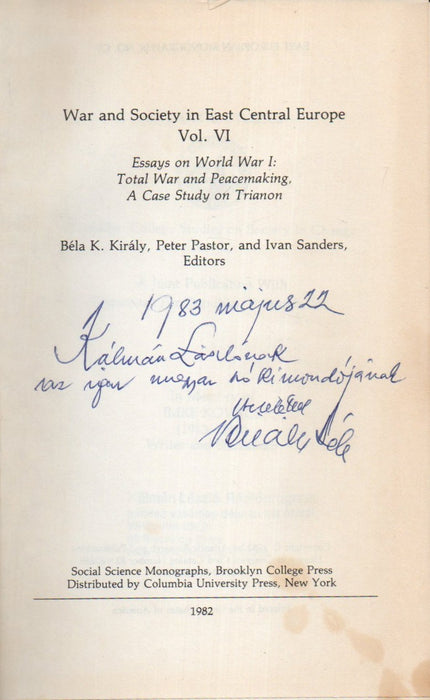 War and Society in East Central Europe
Vol. VI
Essays on World War I:
Total War and Peacemaking,
A Case Study on Trianon
Béla K. Király, Peter Pastor, and Ivan Sanders,
Editors
1983 május 22
Kálmán Lászlónak
az igaz magyar szó kimondójának
tisztelettel
Király Béla
Social Science Monographs, Brooklyn College Press
Distributed by Columbia University Press, New York
1982